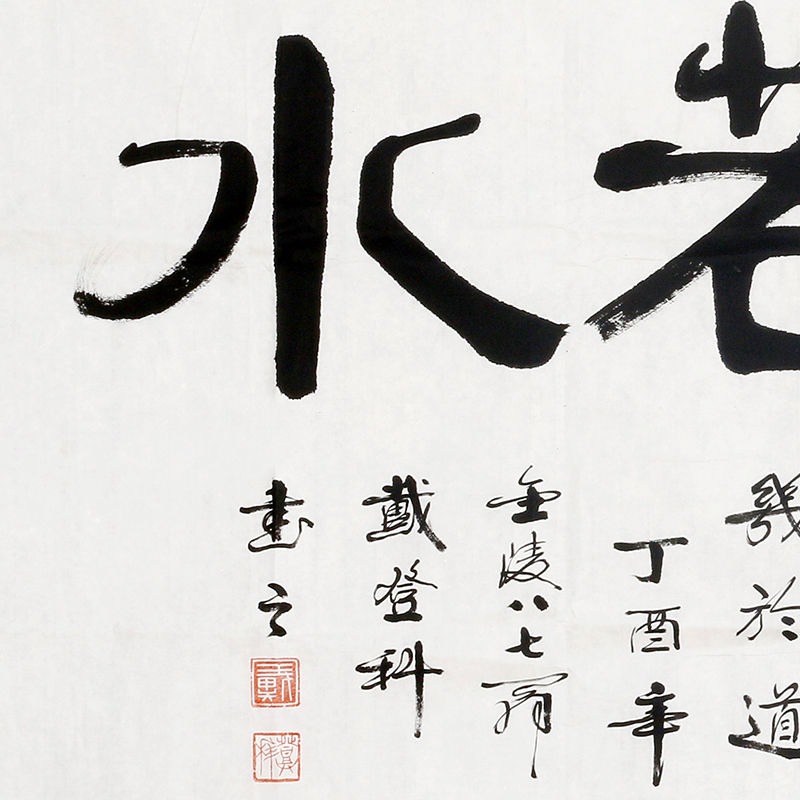 若水
幾於道
丁酉年
金陵八七翁
戴登科
書之
戴